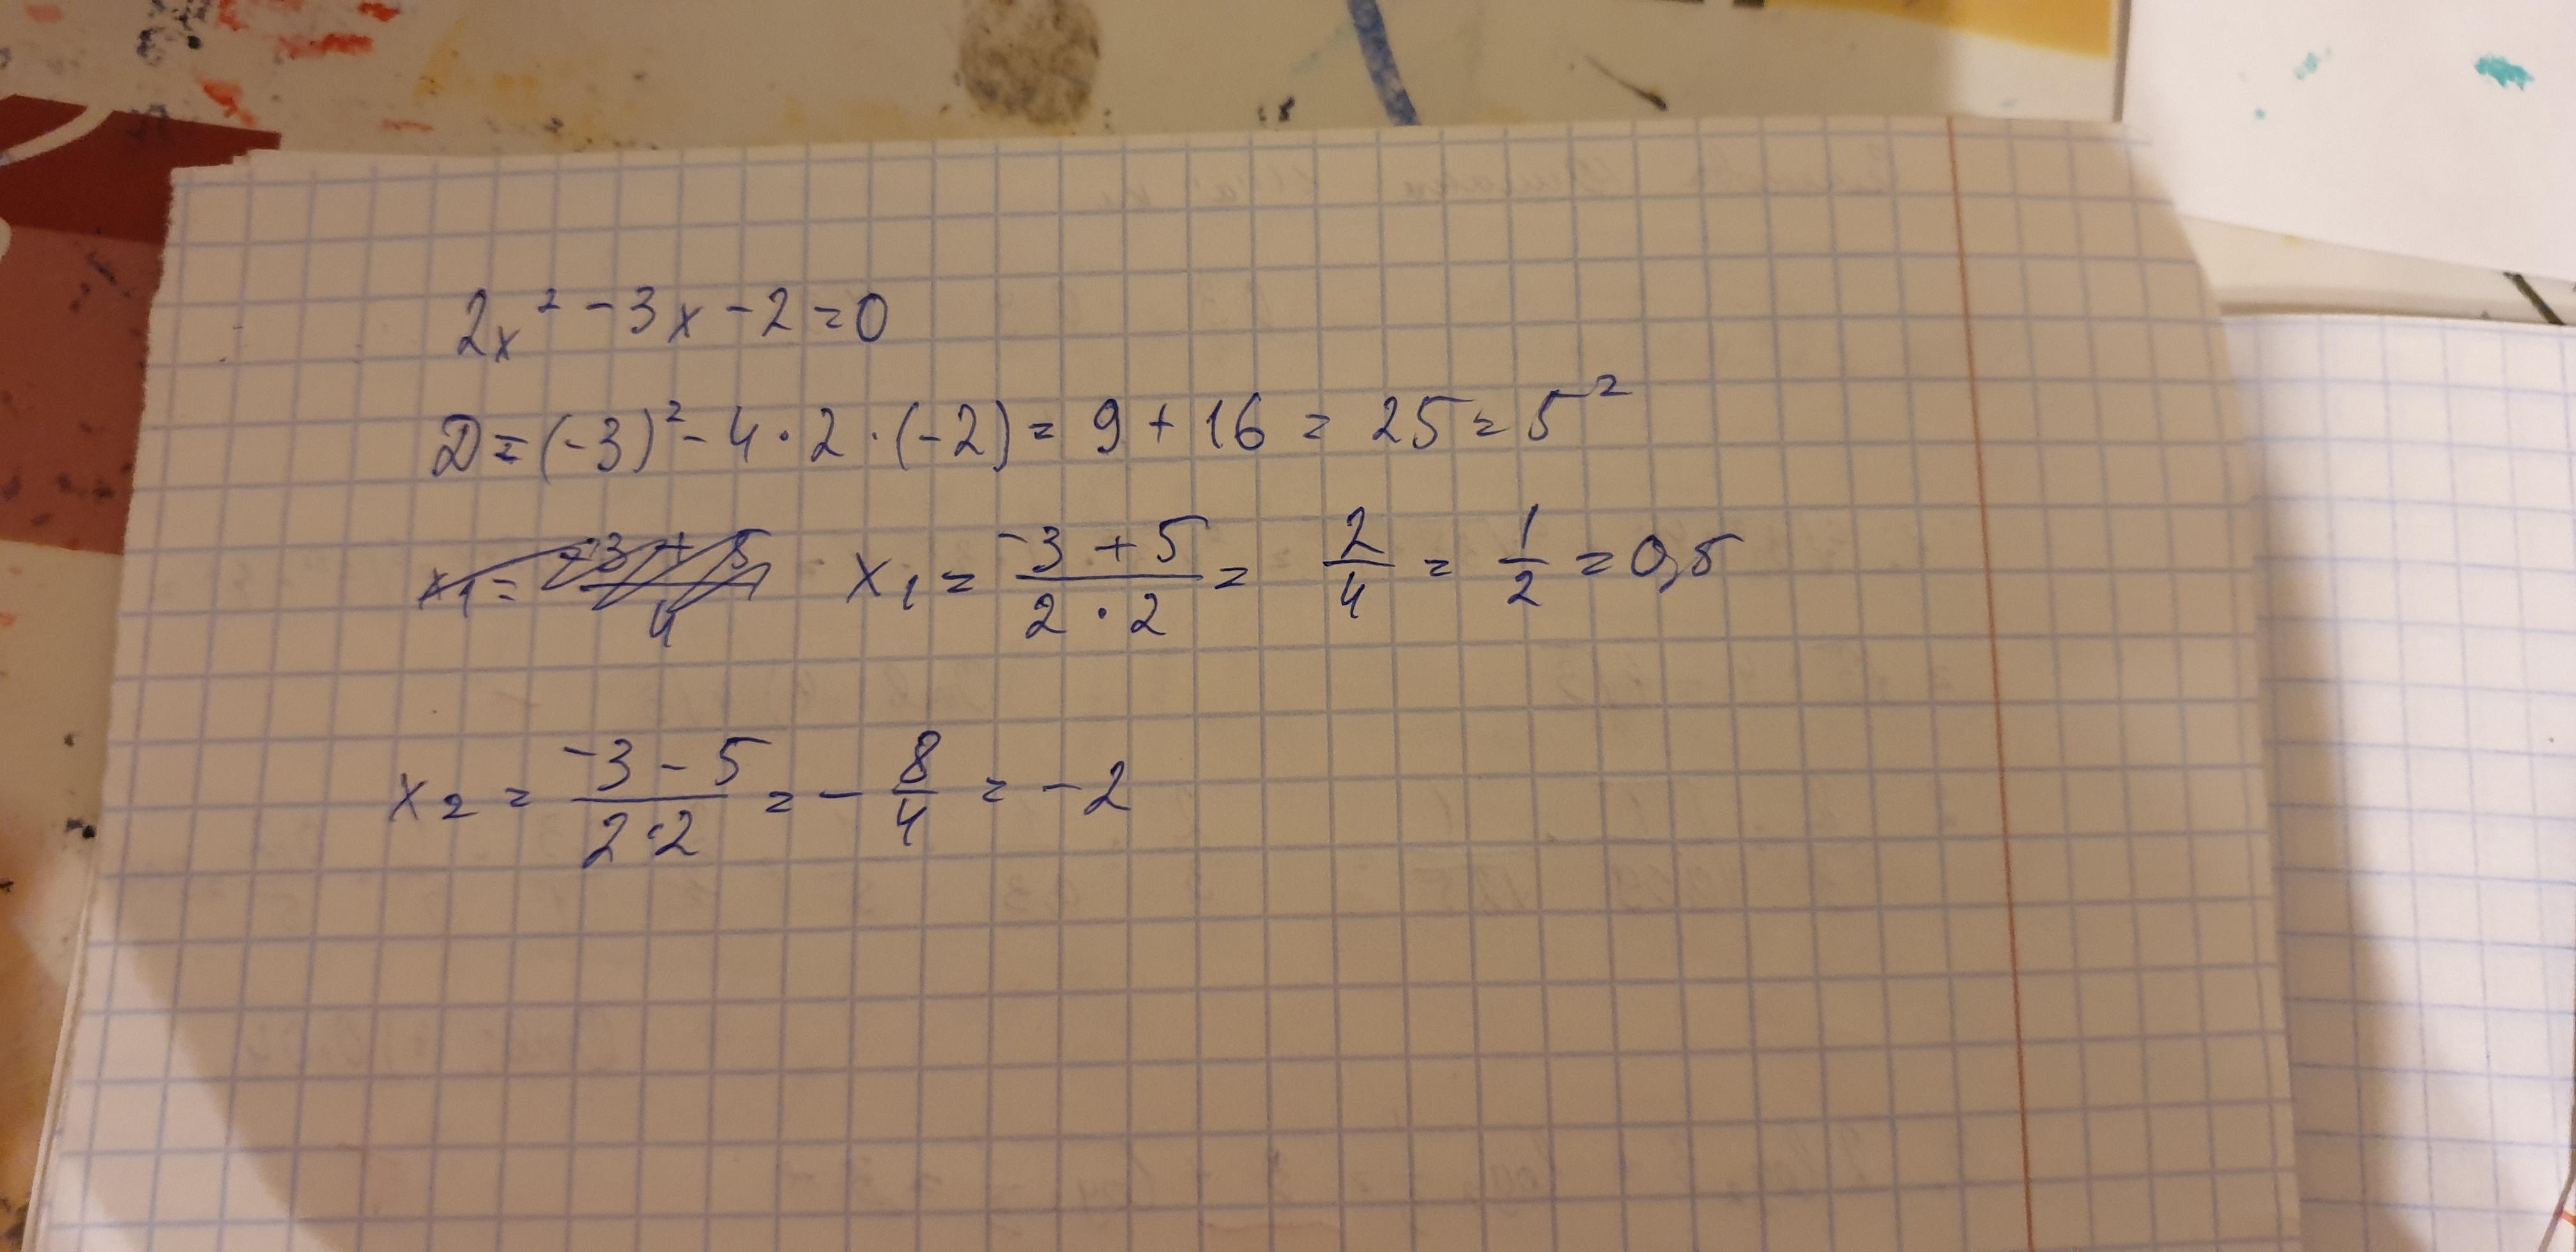 2x² - 3x - 2 = 0
D = (-3)² - 4 · 2 · (-2) = 9 + 16 = 25 = 5²
x₁ = (-3 + 5)/4 x₁ = (-3 + 5)/(2 · 2) = 2/4 = 1/2 = 0,5
x₂ = (-3 - 5)/(2 · 2) = - 8/4 = -2